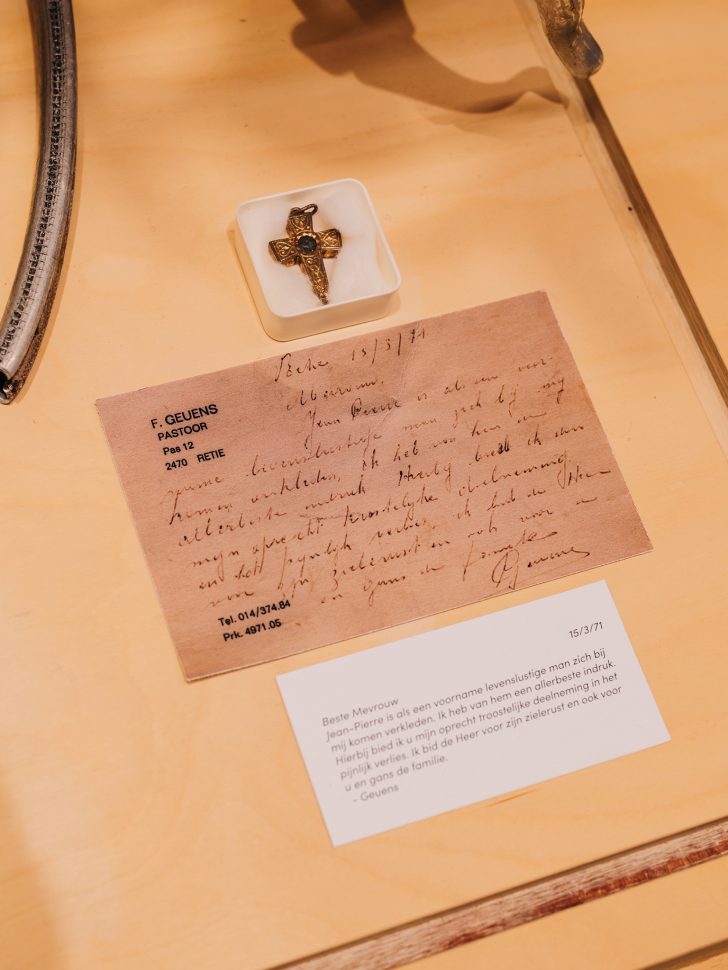 Retie, 15/3/71
Mevrouw,
F. GEUENS
PASTOOR
Pas 12
2470 RETIE
Jean Pierre is als een voor-
name levenslustige man zich bij mij
komen verkleden, ik heb van hem een
allerbeste indruk Hierbij bied ik den
mijn oprecht troostelijke deelneming
en het pijnlijk verlies, ik bid de Heer
voor zijn zielerust en ook voor u
en gans de familie
Geuens
Tel. 014/374.84
Prk. 4971.05
15/3/71
Beste Mevrouw
Jean-Pierre is als een voorname levenslustige man zich bij
mij komen verkleden. Ik heb van hem een allerbeste indruk.
Hierbij bied ik u mijn oprecht troostelijke deelneming in het
pijnlijk verlies. Ik bid de Heer voor zijn zielerust en ook voor
u en gans de familie.
– Geuens